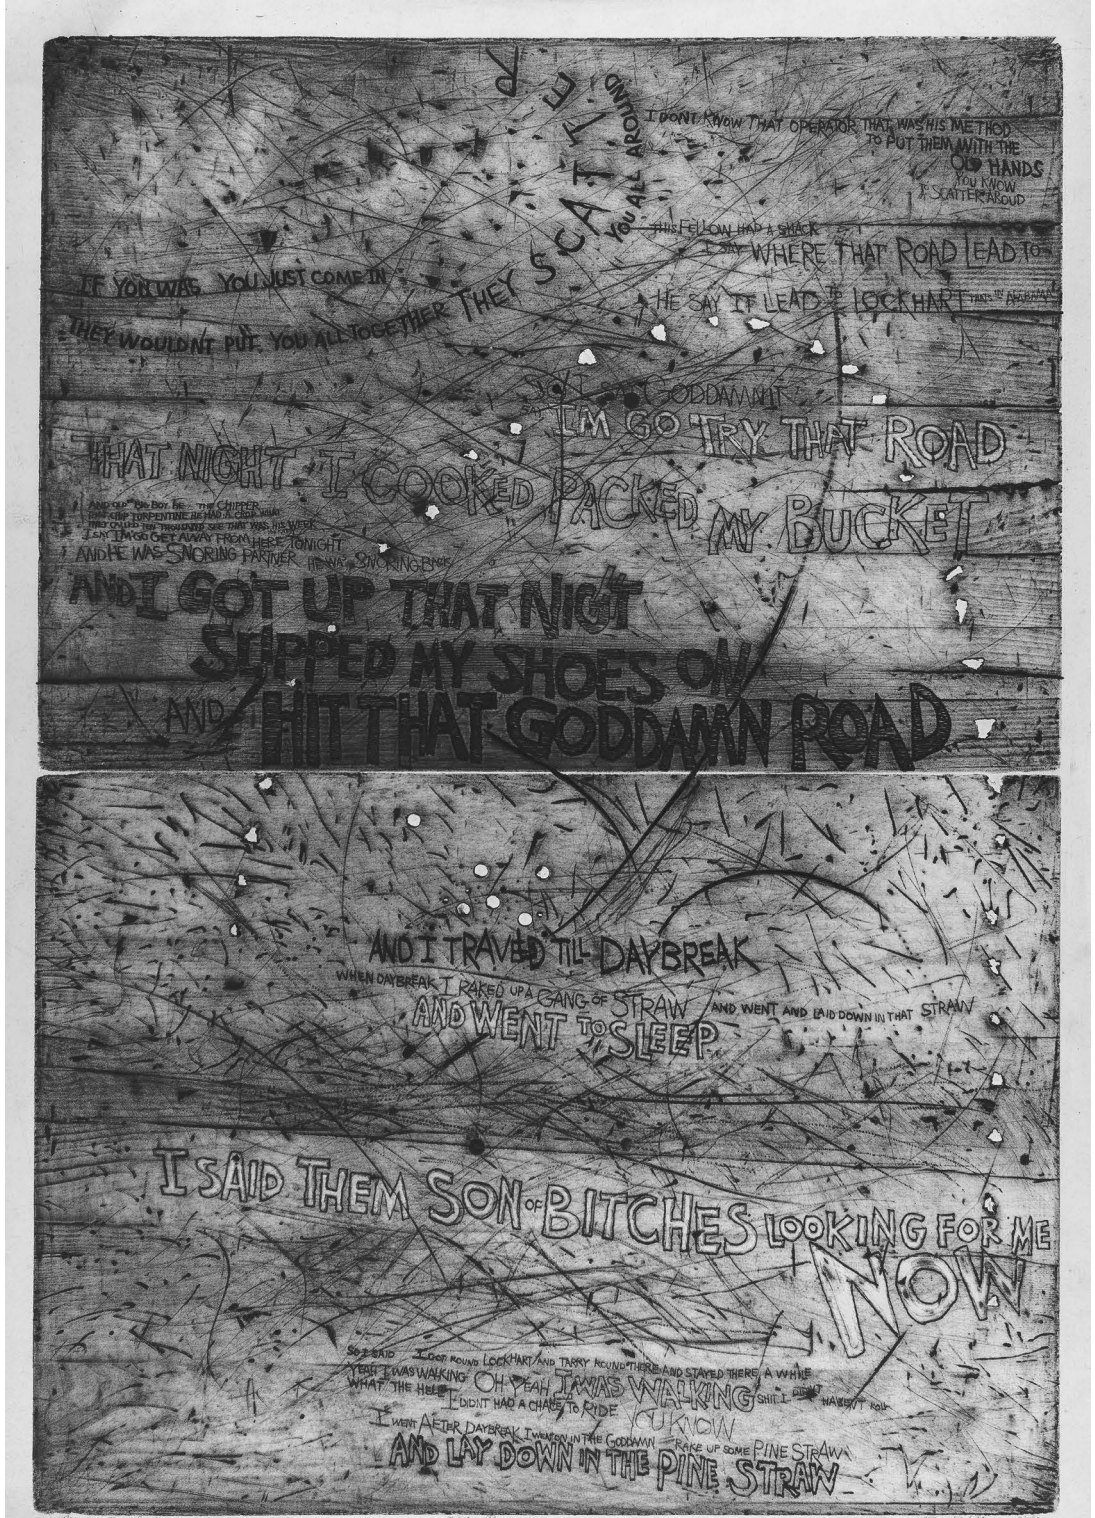 IF YOU WAS YOU JUST COME IN
THEY WOULDNT PUT YOU ALL TOGETHER THEY SCATTER
YOU ALL AROUND
I DONT KNOW THAT OPERATOR THAT WAS HIS METHOD
TO PUT THEM WITH THE
OLD HANDS
YOU KNOW
SCATTER AROUD
THIS FELLOW HAD A SHACK
I SAY WHERE THAT ROAD LEAD TO
HE SAY IT LEADS LOCKHART THATS IN ALABAMA
GODDAMNIT
SAY IM GO TRY THAT ROAD
THAT NIGHT I COOKED PACKED MY BUCKET
AND OLD BIG BOY HE THE CHIPPER
THAT CHIP TURPENTINE HE HAD A CROP WHAT
THEY CALLED TEN THOUSAND SEE THAT WAS HIS WEEK
I SAY IM GO GET AWAY FROM HERE TONIGHT
AND HE WAS SNORING PARTNER HE WAS SNORING BACK
AND I GOT UP THAT NIGT
SLIPPED MY SHOES ON
AND HIT THAT GODDAMN ROAD
AND I TRAVED TILL DAYBREAK
WHEN DAYBREAK I RAKED UP A GANG OF STRAW AND WENT AND LAID DOWN IN THAT STRAW
AND WENT TO SLEEP
I SAID THEM SON OF BITCHES LOOKING FOR ME
NOW
SO I SAID I GOT ROUND LOCKHART AND TARRY ROUND THERE AND STAYED THERE A WHILE
YEAH I WAS WALKING OH YEAH I WAS WALKING SHIT I DIDNT
WHAT THE HELL I DIDNT HAD A CHANCE TO RIDE YOU KNOW
I WENT AFTER DAYBREAK I WENT ON IN THE GODDAMN RAKE UP SOME PINE STRAW
AND LAY DOWN IN THE PINE STRAW